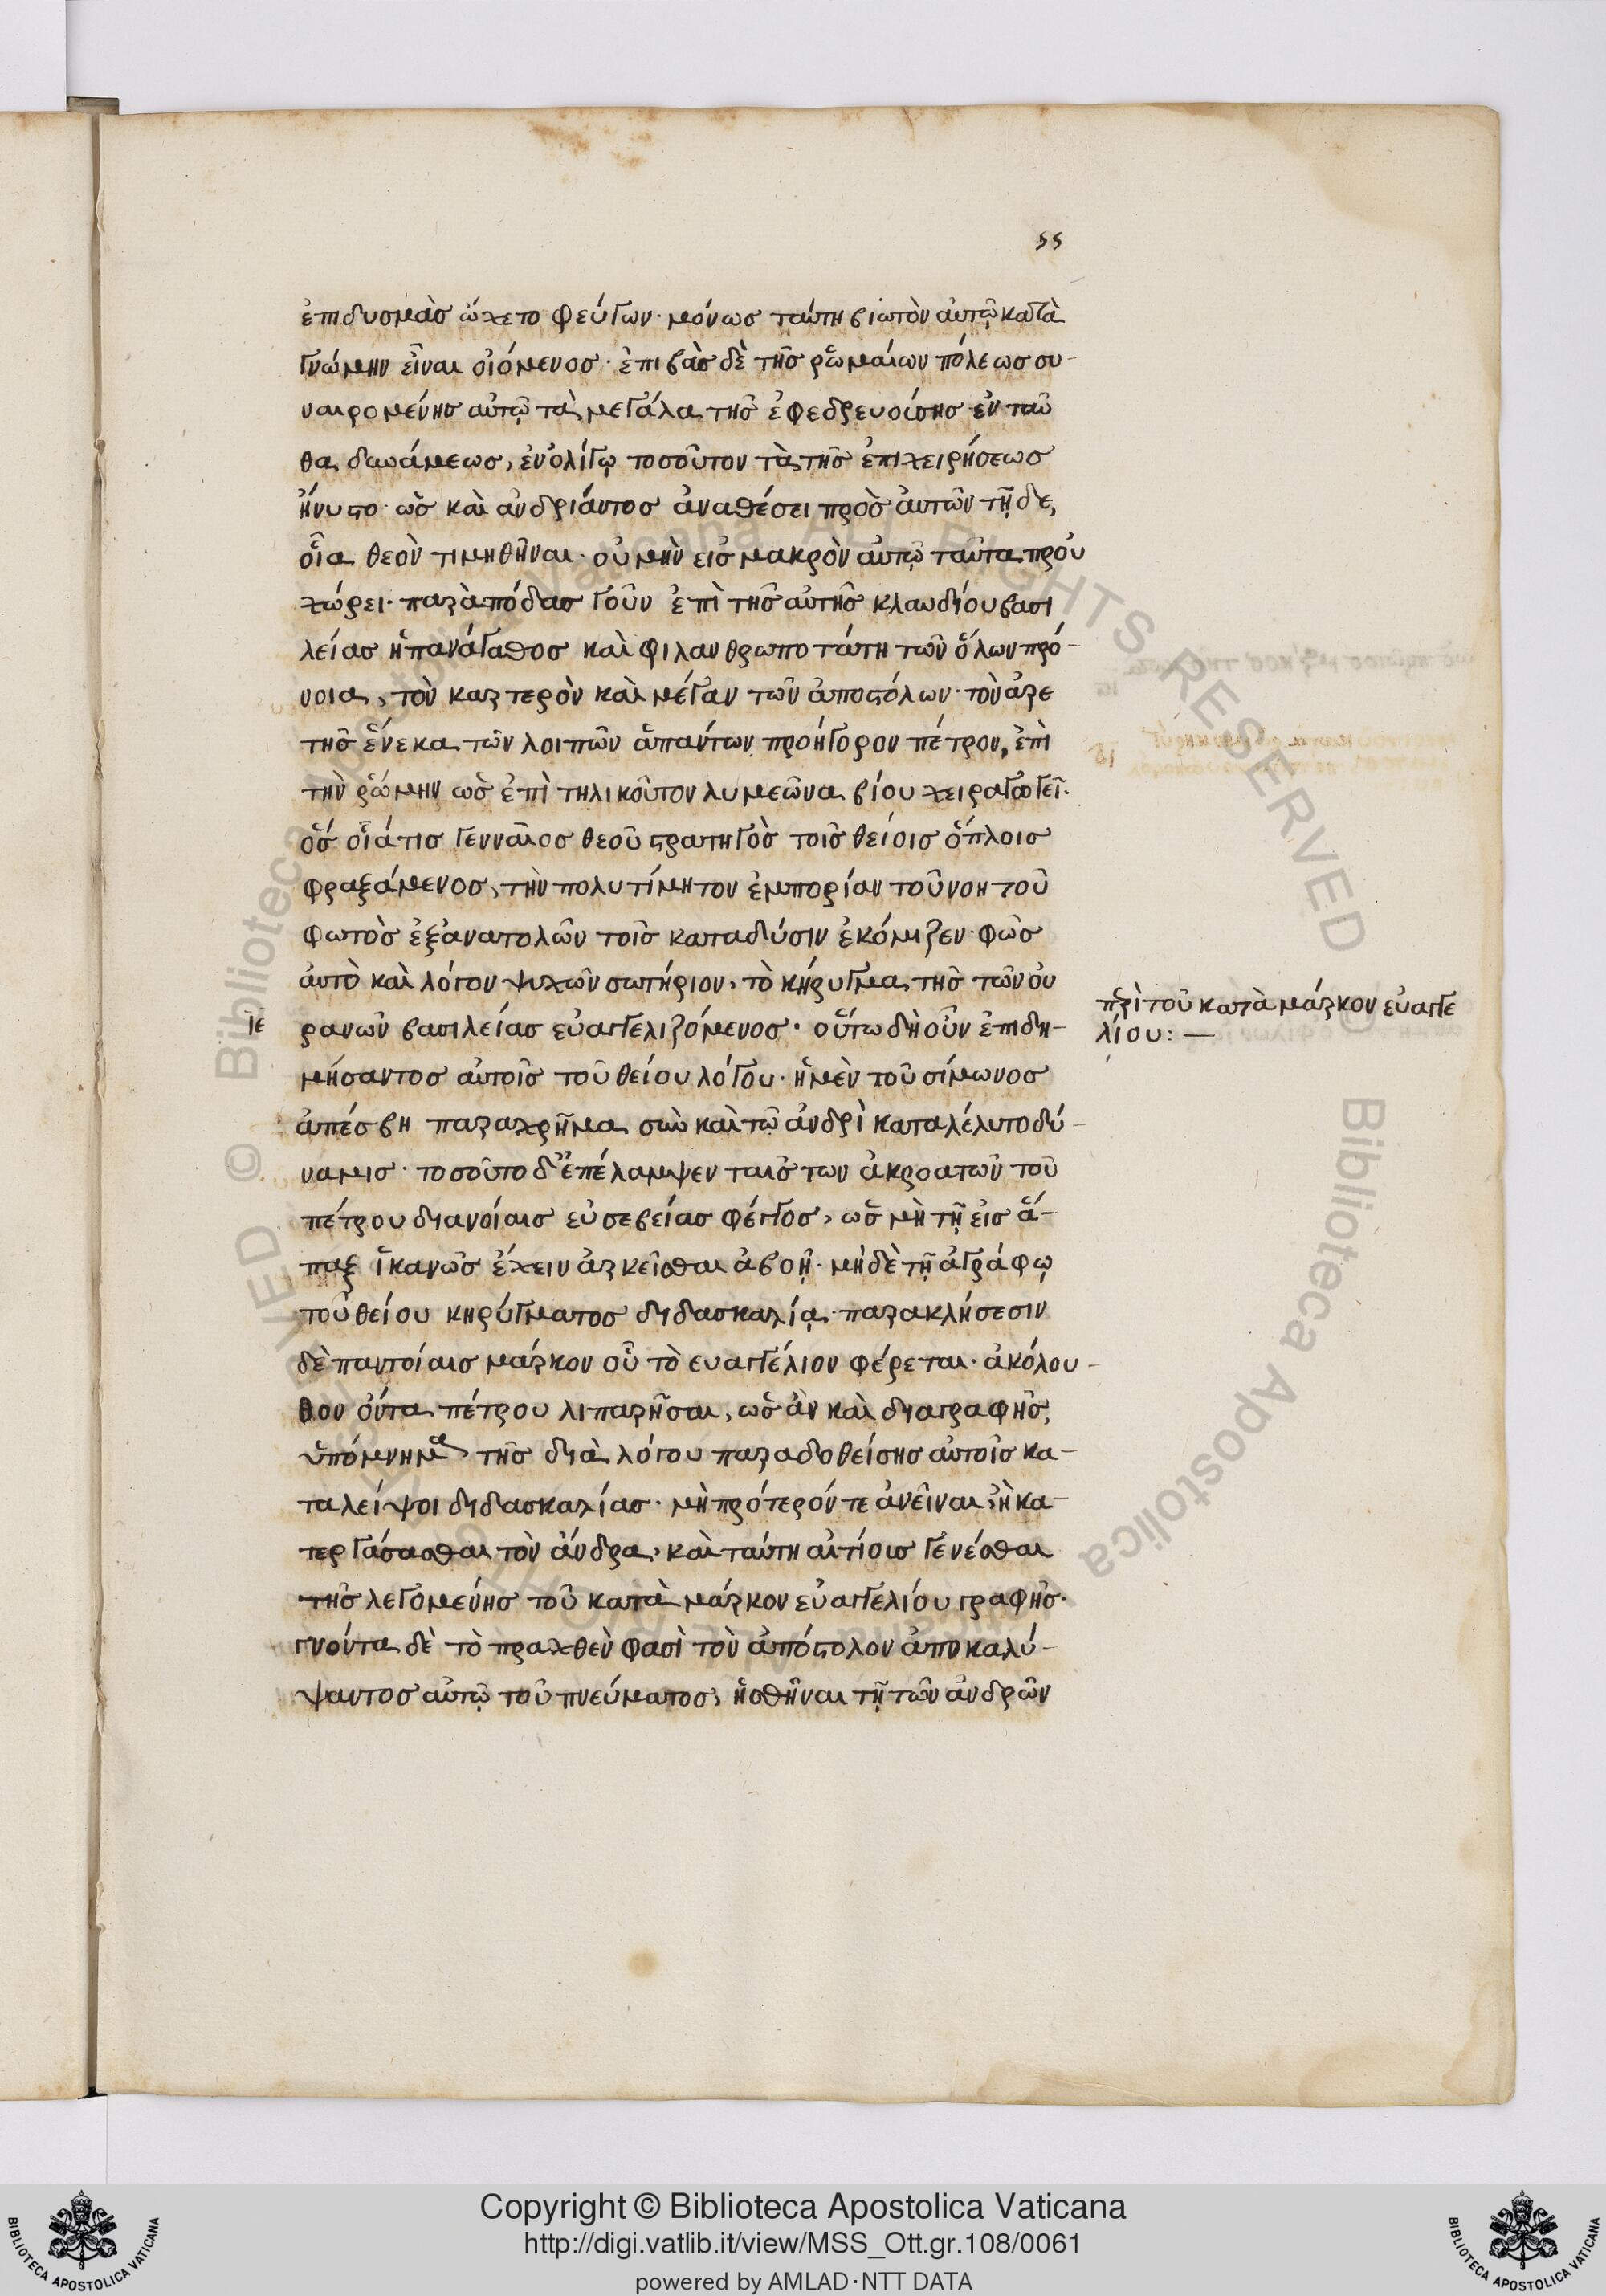 55
ἐπιδυσμὰσ ὤχετο φεύγων· μόνωσ ταύτη βιωτὸν αὐτῷ κατὰ
γνώμην εἶναι οἰόμενοσ· ἐπιβὰσ δὲ τῆσ ῥωμαίων πόλεωσ συ-
ναιρομένησ αὐτῷ τὰ μεγάλα τῆσ ἐφεδρευούσησ ἐνταῦ
θα δυνάμεωσ, ἐν ὀλίγῳ τοσοῦτον τὰ τῆσ ἐπιχειρήσεωσ
ἤνυστο· ὡσ καὶ ἀνδριάντοσ ἀναθέσει πρὸσ αὐτῶν τῇδε,
οἷα θεὸν τιμηθῆναι· οὐ μὴν εἰσ μακρὸν αὐτῷ ταῦτα προὐ
χώρει· παρὰ πόδασ γοῦν ἐπὶ τῆσ αὐτῆσ κλαυδίου βασι
λείασ ἡ πανάγαθοσ καὶ φιλανθρωποτάτη τῶν ὅλων πρό-
νοια, τὸν καρτερὸν καὶ μέγαν τῶν ἀποστόλων· τὸν ἀρε
τῆσ ἕνεκα τῶν λοιπῶν ἁπάντων προήγορον πέτρον, ἐπὶ
τὴν ῥώμην ὡσ ἐπὶ τηλικοῦτον λυμεῶνα βίου χειραγωγεῖ·
ὅσ οἷά τισ γενναῖοσ θεοῦ στρατηγὸσ τοῖσ θείοισ ὅπλοισ
φραξάμενοσ, τὴν πολυτίμητον ἐμπορίαν τοῦ νοητοῦ
φωτὸσ ἐξ ἀνατολῶν τοῖσ κατα δύσιν ἐκόμιζεν· φῶσ
αὐτὸ καὶ λόγον ψυχῶν σωτήριον, τὸ κήρυγμα τῆσ τῶν οὐ
ιε ρανῶν βασιλείασ εὐαγγελιζόμενοσ· οὕτω δὴ οὖν ἐπιδη-
περὶ τοῦ κατὰ μάρκον εὐαγγε
λίου:—
μήσαντοσ αὐτοῖσ τοῦ θείου λόγου· ἡ μὲν τοῦ σίμωνοσ
ἀπέσβη παραχρῆμα σὺν καὶ τῶ ἀνδρὶ καταλέλυτο δύ-
ναμισ· τοσοῦτο δ' ἐπέλαμψεν ταῖσ των ἀκροατῶν τοῦ
πέτρου διανοίαισ εὐσεβείασ φέγγοσ, ὡσ μὴ τῇ εἰσ ἅ-
παξ ἱκανῶσ ἔχειν ἀρκεῖσθαι ἀβοῇ· μὴδὲ τῇ ἀγράφῳ
τοῦ θείου κηρύγματοσ διδασκαλίᾳ· παρακλήσεσιν
δὲ παντοίαισ μάρκον οὗ τὸ ευαγγέλιον φέρεται· ἀκόλου-
θον ὄντα πέτρου λιπαρῆσαι, ὡσ ἂν καὶ διαγραφῆσ,
ὑπόμνημα τῆσ διὰ λόγου παραδοθείσησ αὐτοῖσ κα-
ταλείψοι διδασκαλίασ· μὴ πρότερόν τε ἀνεῖναι, ἢ κα-
τεργάσασθαι τὸν ἄνδρα, καὶ ταύτη αἰτίουσ γενέσθαι
τῆσ λεγομένησ τοῦ κατὰ μάρκον εὐαγγελίου γραφῆσ·
γνόντα δὲ τὸ πραχθὲν φασὶ τὸν ἀπόστολον ἀποκαλύ-
ψαντοσ αὐτῷ τοῦ πνεύματοσ, ἡσθῆναι τῇ τῶν ἀνδρῶν
Copyright © Biblioteca Apostolica Vaticana
http://digi.vatlib.it/view/MSS_Ott.gr.108/0061
powered by AMLAD·NTT DATA